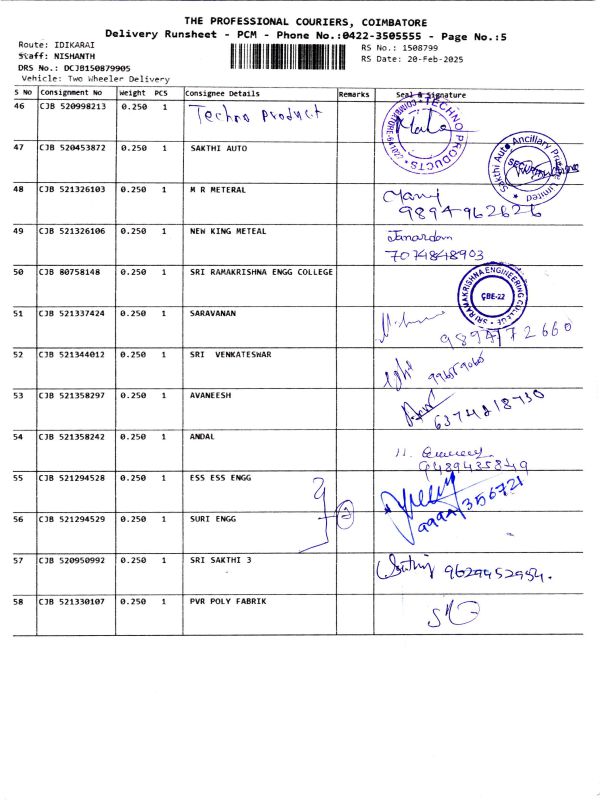 THE PROFESSIONAL COURIERS, COIMBATORE
Delivery Runsheet - PCM - Phone No.:0422-3505555 - Page No.:5
Route: IDIKARAI
RS No.: 1508799
Staff: NISHANTH
RS Date: 20-Feb-2025
DRS No.: DCJB150879905
Vehicle: Two Wheeler Delivery
S No Consignment No Weight PCS Consignee Details Remarks Seal & Signature
46 CJB 520998213 0.250 1 Techno Product
TECHNO PRODUCTS
47 CJB 520453872 0.250 1 SAKTHI AUTO
Sakthi Auto Ancillary Private Limited
SECURITY
48 CJB 521326103 0.250 1 M R METERAL
9894962626
49 CJB 521326106 0.250 1 NEW KING METEAL
Janardan
7074848903
50 CJB 80758148 0.250 1 SRI RAMAKRISHNA ENGG COLLEGE
SRI RAMAKRISHNA ENGINEERING COLLEGE
CBE-22
51 CJB 521337424 0.250 1 SARAVANAN
9894772660
52 CJB 521344012 0.250 1 SRI VENKATESWAR
53 CJB 521358297 0.250 1 AVANEESH
6374218730
54 CJB 521358242 0.250 1 ANDAL
9489435849
55 CJB 521294528 0.250 1 ESS ESS ENGG
56 CJB 521294529 0.250 1 SURI ENGG
2
57 CJB 520950992 0.250 1 SRI SAKTHI 3
9629452954.
58 CJB 521330107 0.250 1 PVR POLY FABRIK